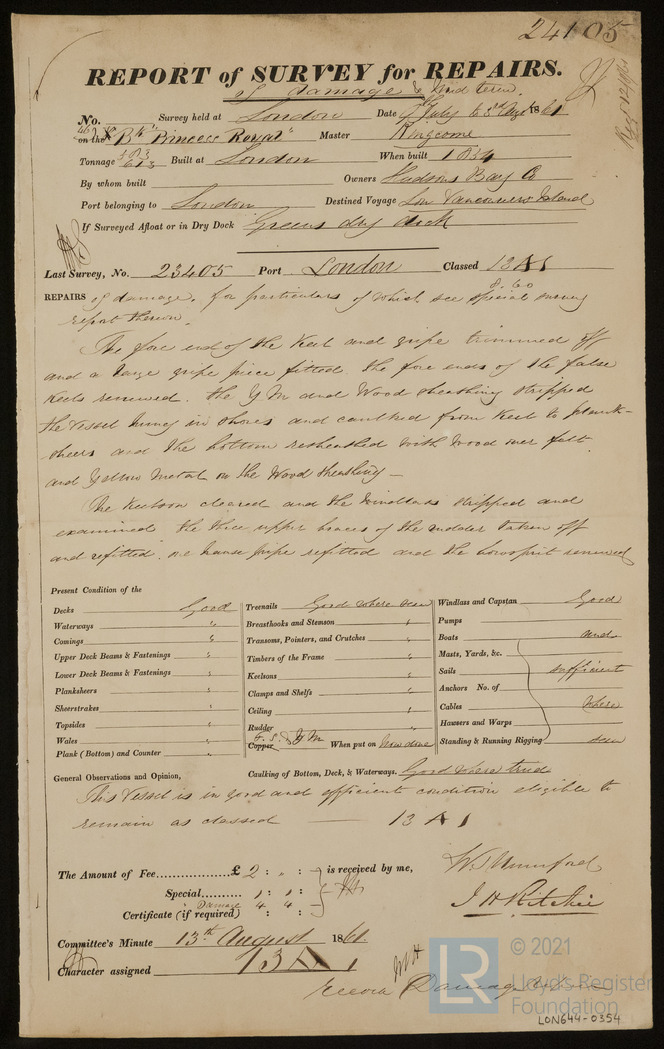 24105
REPORT of SURVEY for REPAIRS.
of damage & 3rd term.
No. Survey held at London Date July to 3rd Augt 1861
on the Bk "Princess Royal" Master Kingcome
Tonnage 583 613 Built at London When built 1854
By whom built Owners Hudsons Bay Co
Port belonging to London Destined Voyage Lon Vancouvers Island
If Surveyed Afloat or in Dry Dock Greens dry dock
Last Survey, No. 23405 Port London Classed 13 A 1
8.60
REPAIRS of damage, for particulars of which see special survey
report thereon.
The fore end of the Keel and gripe trimmed off
and a large gripe piece fitted the fore ends of the false
Keels renewed. the Y M and Wood sheathing stripped
the Vessel hung in shores and caulked from Keel to plank-
sheers and the bottom resheathed with wood over felt
and Yellow Metal on the Wood sheathing —
The Keelson cleared and the windlass stripped and
examined the three upper braces of the rudder taken off
and refitted. one hause pipe refitted and the bowsprit renewed
Present Condition of the
Decks Good
Waterways "
Comings "
Upper Deck Beams & Fastenings "
Lower Deck Beams & Fastenings "
Planksheers "
Sheerstrakes "
Topsides "
Wales "
Plank (Bottom) and Counter "
Treenails Good where seen
Breasthooks and Stemson "
Transoms, Pointers, and Crutches "
Timbers of the Frame "
Keelsons "
Clamps and Shelfs "
Ceiling "
Rudder "
F. S. & Y M
Copper When put on Now done
Windlass and Capstan Good
Pumps
Boats and
Masts, Yards, &c.
Sails sufficient
Anchors No. of
Cables where
Hawsers and Warps
Standing & Running Rigging seen
General Observations and Opinion, Caulking of Bottom, Deck, & Waterways. Good where tried
This Vessel is in good and efficient condition eligible to
remain as classed — 13 A 1
The Amount of Fee £ 2 : " : is received by me,
Special 1 : 1 :
Damage 4 4
Certificate (if required) : :
W J Mumford
J H Ritchie
Committee's Minute 13th August 1861.
Character assigned 13 A 1
Damage
© 2021
LR Lloyd's Register
Foundation
LON644-0354